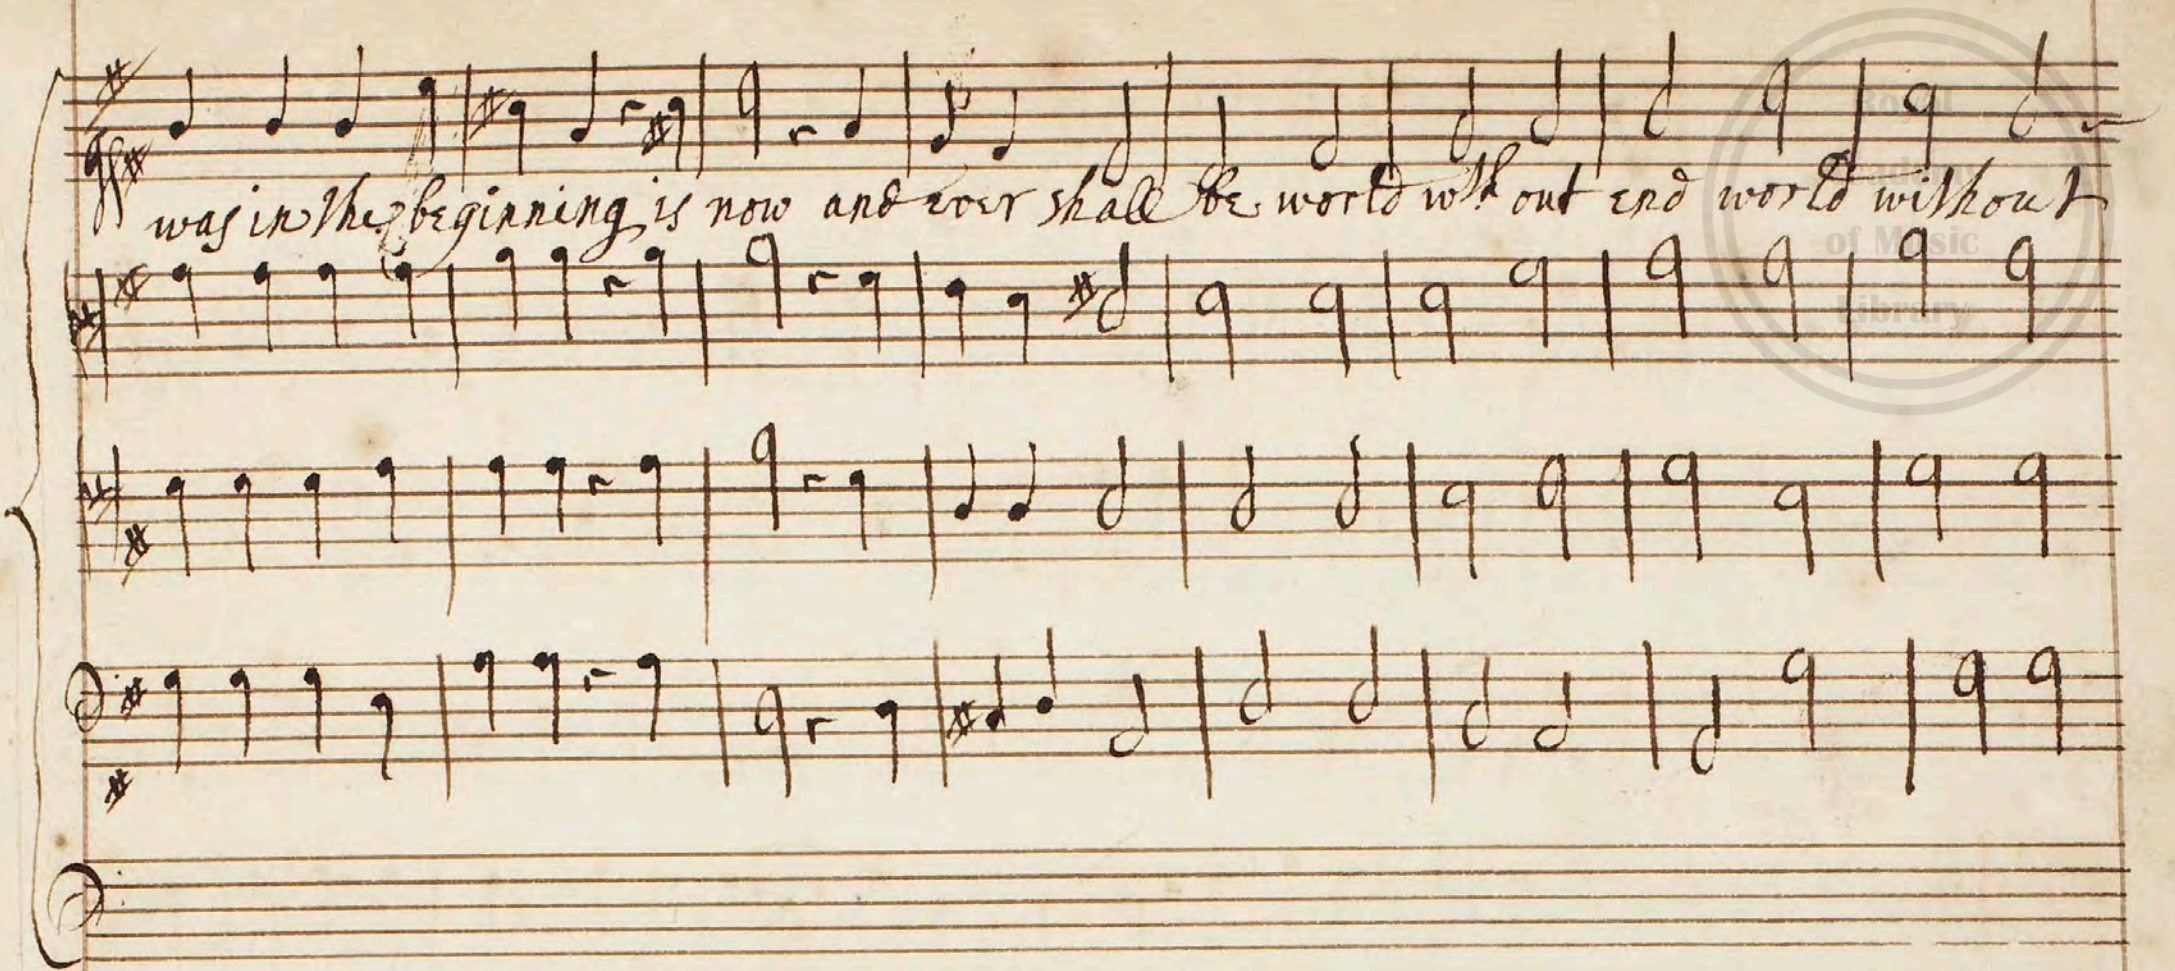 was in the beginning is now and ever shall be world with out end world without
Royal
Academy
of Music
Library